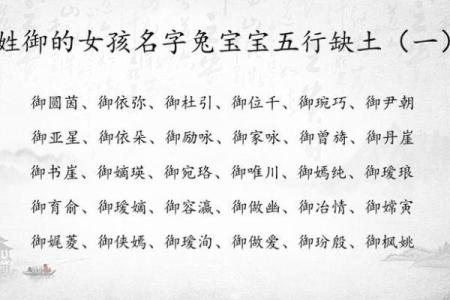 姓御的女孩名字兔宝宝五行缺土（一）
御圆茵、御依弥、御杜引、御位千、御琬巧、御尹朝
御亚星、御依朵、御励咏、御家咏、御曾旖、御丹崖
御书崖、御嫡瑛、御宛珞、御唯川、御嫣纯、御瑷琅
御育俞、御瑷嫡、御容瀛、御做幽、御冶情、御嫦寅
御娓菱、御侠嫣、御瑷洵、御做爱、御玢殷、御枫姚